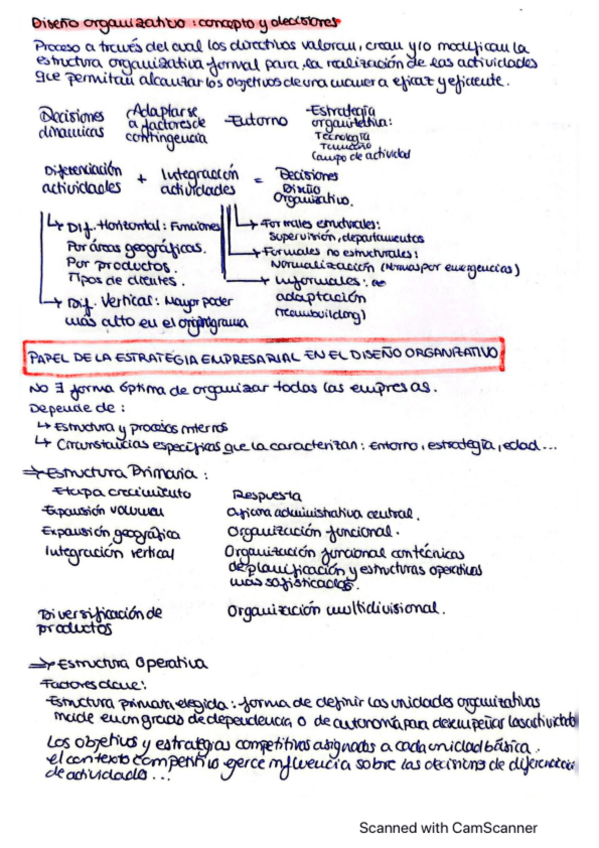 Diseño organizativo: concepto y decisiones
Proceso a través del cual los directivos valoran, crean y/o modifican la
estructura organizativa formal para la realización de las actividades
que permitan alcanzar los objetivos de una manera eficaz y eficiente.
Decisiones dinámicas
Adaptarse a factores de contingencia
-Entorno
-Estrategia organizativa:
Tecnología
Tamaño
Campo de actividad
Diferenciación actividades + Integración actividades = Decisiones Diseño Organizativo.
↳ Dif. Horizontal: Funciones
Por áreas geográficas.
Por productos.
Tipos de clientes.
↳ Dif. Vertical: Mayor poder
más alto en el organigrama
→ Formales estructurales:
supervisión, departamentos
→ Formales no estructurales:
Normalización (Normas por emergencias)
→ Informales:
adaptación
(teambuilding)
PAPEL DE LA ESTRATEGIA EMPRESARIAL EN EL DISEÑO ORGANIZATIVO
NO ∃ forma óptima de organizar todas las empresas.
Depende de:
↳ Estructura y procesos internos
↳ Circunstancias específicas que la caracterizan: entorno, estrategia, edad...
→ Estructura Primaria:
Etapa crecimiento Respuesta
Expansión volumen oficina administrativa central.
Expansión geográfica Organización funcional.
Integración vertical Organización funcional con técnicas
de planificación y estructuras operativas
más sofisticadas.
Diversificación de productos Organización multidivisional.
→ Estructura Operativa
Factores clave:
Estructura primaria elegida: forma de definir las unidades organizativas
incide en un grado de dependencia o de autonomía para desempeñar las actividad
Los objetivos y estrategias competitivas asignadas a cada unidad básica.
el contexto competitivo ejerce influencia sobre las decisiones de diferenciación
de actividades...
Scanned with CamScanner